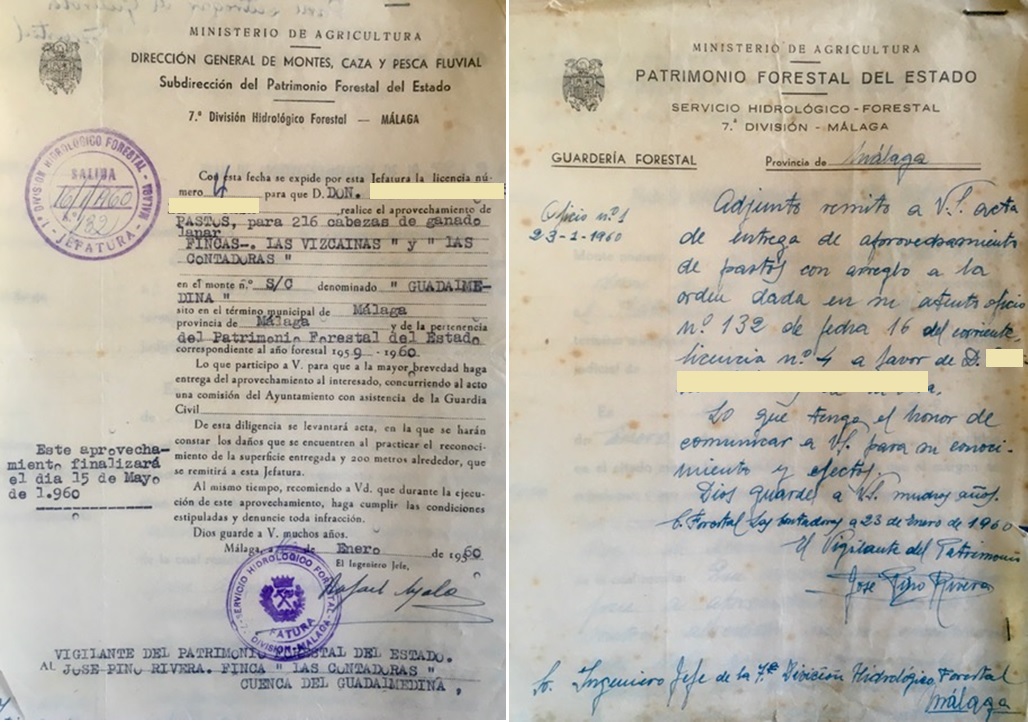 MINISTERIO DE AGRICULTURA
DIRECCIÓN GENERAL DE MONTES, CAZA Y PESCA FLUVIAL
Subdirección del Patrimonio Forestal del Estado
7.ª División Hidrológico Forestal — MÁLAGA
DIVISIÓN HIDROLÓGICO FORESTAL - MÁLAGA
SALIDA
JEFATURA
Con esta fecha se expide por esta Jefatura la licencia nú-
mero 4 para que D. DON.
,realice el aprovechamiento de
PASTOS, para 216 cabezas de ganado
lanar
FINCAS-. LAS VIZCAINAS " y " LAS
CONTADORAS "
en el monte n.º S/C denominado " GUADALME-
DINA "
sito en el término municipal de Málaga
provincia de Málaga y de la pertenencia
del Patrimonio Forestal del Estado
correspondiente al año forestal 1959 - 1960.
Lo que participo a V. para que a la mayor brevedad haga
entrega del aprovechamiento al interesado, concurriendo al acto
una comisión del Ayuntamiento con asistencia de la Guardia
Civil
De esta diligencia se levantará acta, en la que se harán
constar los daños que se encuentren al practicar el reconoci-
miento de la superficie entregada y 200 metros alrededor, que
se remitirá a esta Jefatura.
Este aprovecha-
miento finalizará
el dia 15 de Mayo
de 1.960
Al mismo tiempo, recomiendo a Vd. que durante la ejecu-
ción de este aprovechamiento, haga cumplir las condiciones
estipuladas y denuncie toda infracción.
Dios guarde a V. muchos años.
Málaga, de Enero de 1960
El Ingeniero Jefe,
Rafael Ayala
SERVICIO HIDROLÓGICO FORESTAL
JEFATURA
7.ª DIVISIÓN-MÁLAGA
VIGILANTE DEL PATRIMONIO FORESTAL DEL ESTADO.
AL JOSE-PINO RIVERA. FINCA " LAS CONTADORAS "
CUENCA DEL GUADALMEDINA,
MINISTERIO DE AGRICULTURA
PATRIMONIO FORESTAL DEL ESTADO
SERVICIO HIDROLÓGICO-FORESTAL
7.ª DIVISIÓN - MÁLAGA
GUARDERÍA FORESTAL
Provincia de Málaga
Oficio n.º 1
23-1-1960
Adjunto remito a V.S. acta
de entrega de aprovechamiento
de pastos con arreglo a la
orden dada en su atento oficio
n.º 132 de fecha 16 del corriente,
licencia n.º 4 a favor de D.
Lo que tengo el honor de
comunicar a V.S. para su conoci-
miento y efectos.
Dios guarde a V.S. muchos años.
C. Forestal Las Contadoras a 23 de Enero de 1960
El Vigilante del Patrimonio
José Pino Rivera
Sr. Ingeniero Jefe de la 7.ª División Hidrológico Forestal
Málaga